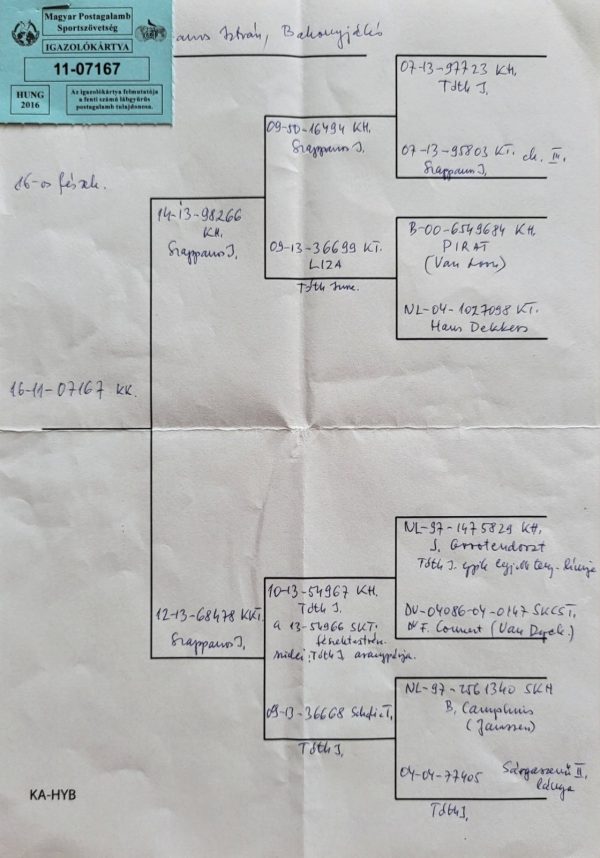 Magyar Postagalamb
Sportszövetség
IGAZOLÓKÁRTYA
11-07167
HUNG
2016
Az igazolókártya felmutatója
a fenti számú lábgyűrűs
postagalamb tulajdonosa.
István, Bakonyjákó
07-13-97723 KH.
Tóth J.
09-50-16494 KH.
Szappanos I.
07-13-95803 KT. ch. III.
Szappanos I.
16-os fészek.
14-13-98266
KH.
Szappanos I.
B-00-6549684 KH.
PIRAT
(Van Loon)
09-13-36699 KT.
LIZA
Tóth Imre.
NL-04-1027098 KT.
Hans Dekkers
16-11-07167 KK.
NL-97-1475829 KH.
J. Grootendorst
Tóth J. egyik
10-13-54967 KH.
Tóth J.
a 13-54966 SKT.
fészektestvére.
Tóth J. aranypárja.
DV-04086-04-0147 SKCST.
F. (Van Dyck.)
12-13-68478 KKT.
Szappanos I.
NL-97-2561340 SKH
B. Camphuis
(Janssen)
09-13-36668
Tóth J.
04-04-77405 Sárgaszemű II.
lánya
Tóth J.
KA-HYB